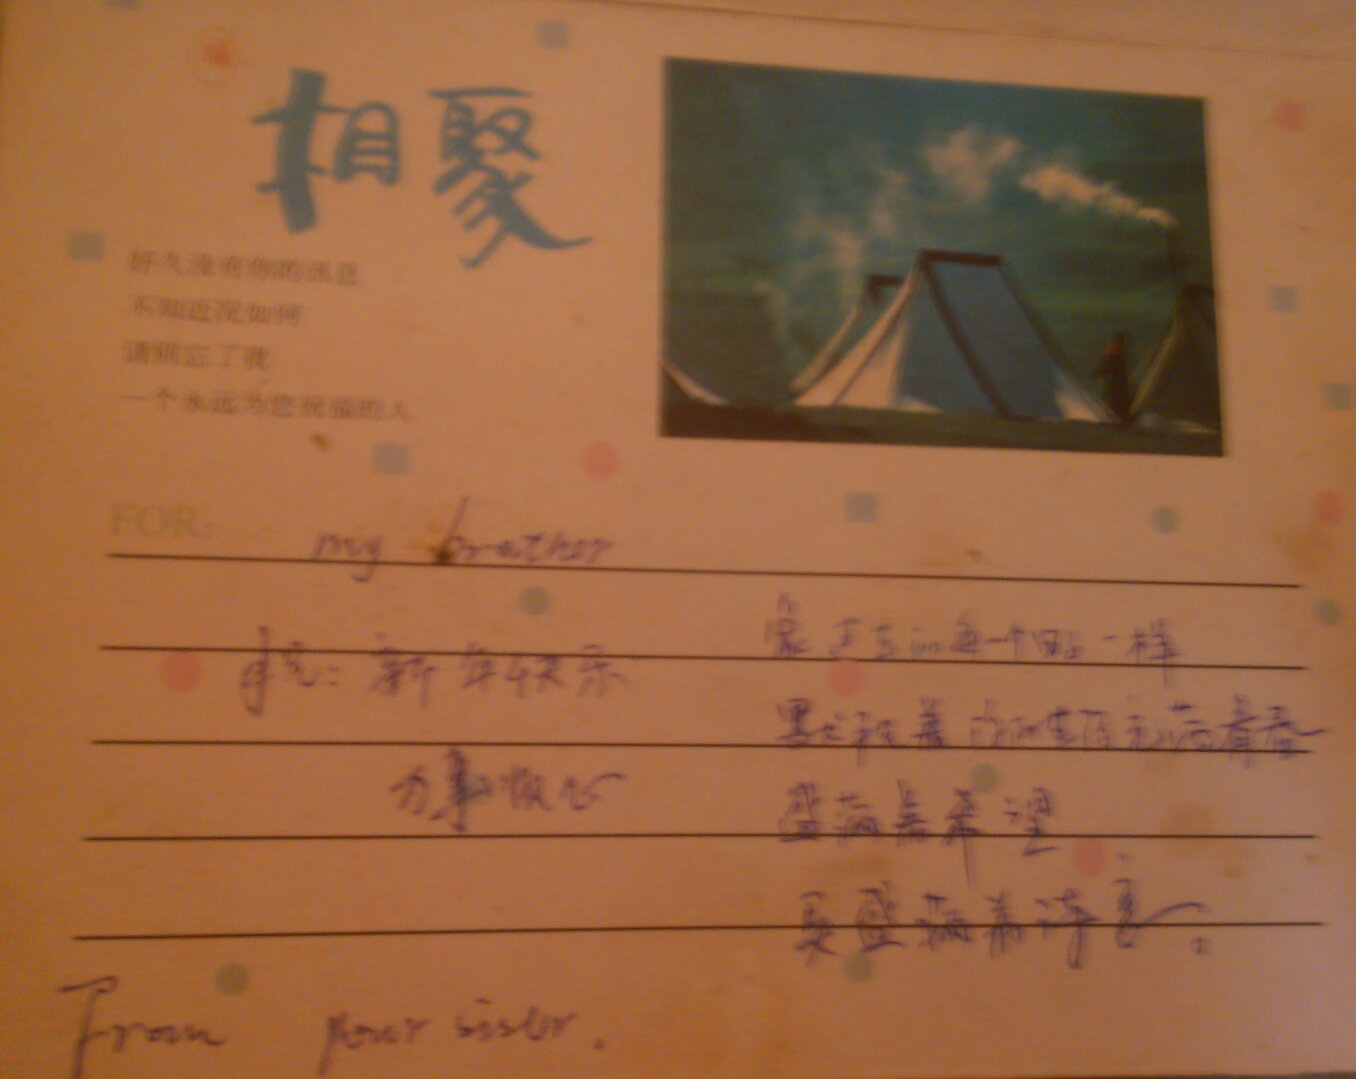 相聚
好久没有你的讯息
不知近况如何
请别忘了我
一个永远为您祝福的人
FOR:
my brother
祝：新年快乐
万事顺心
像过去的每一个 一样
愿 着 生活充满青春
盛满着希望
更盛满着诗意。
From your sister.